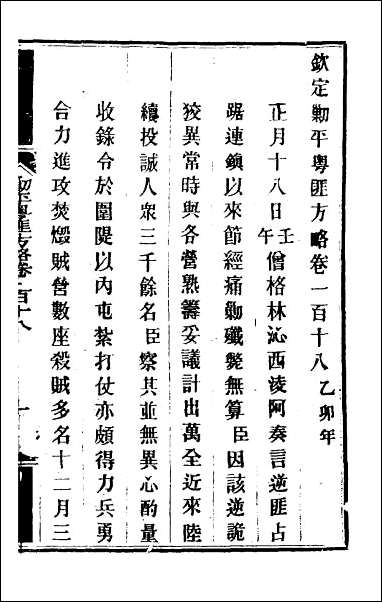 欽定勦平粵匪方略卷一百十八乙卯年
正月十八日壬午僧格林沁西淩阿奏言逆匪占
踞連鎮以來節經痛勦殲斃無算臣因該逆詭
狡異常時與各營熟籌妥議計出萬全近來陸
續投誠人衆三千餘名臣察其並無異心酌量
收錄令於圍隄以內屯紮打仗亦頗得力兵勇
合力進攻焚燬賊營數座殺賊多名十二月三
勦平粵匪方略卷一百十八